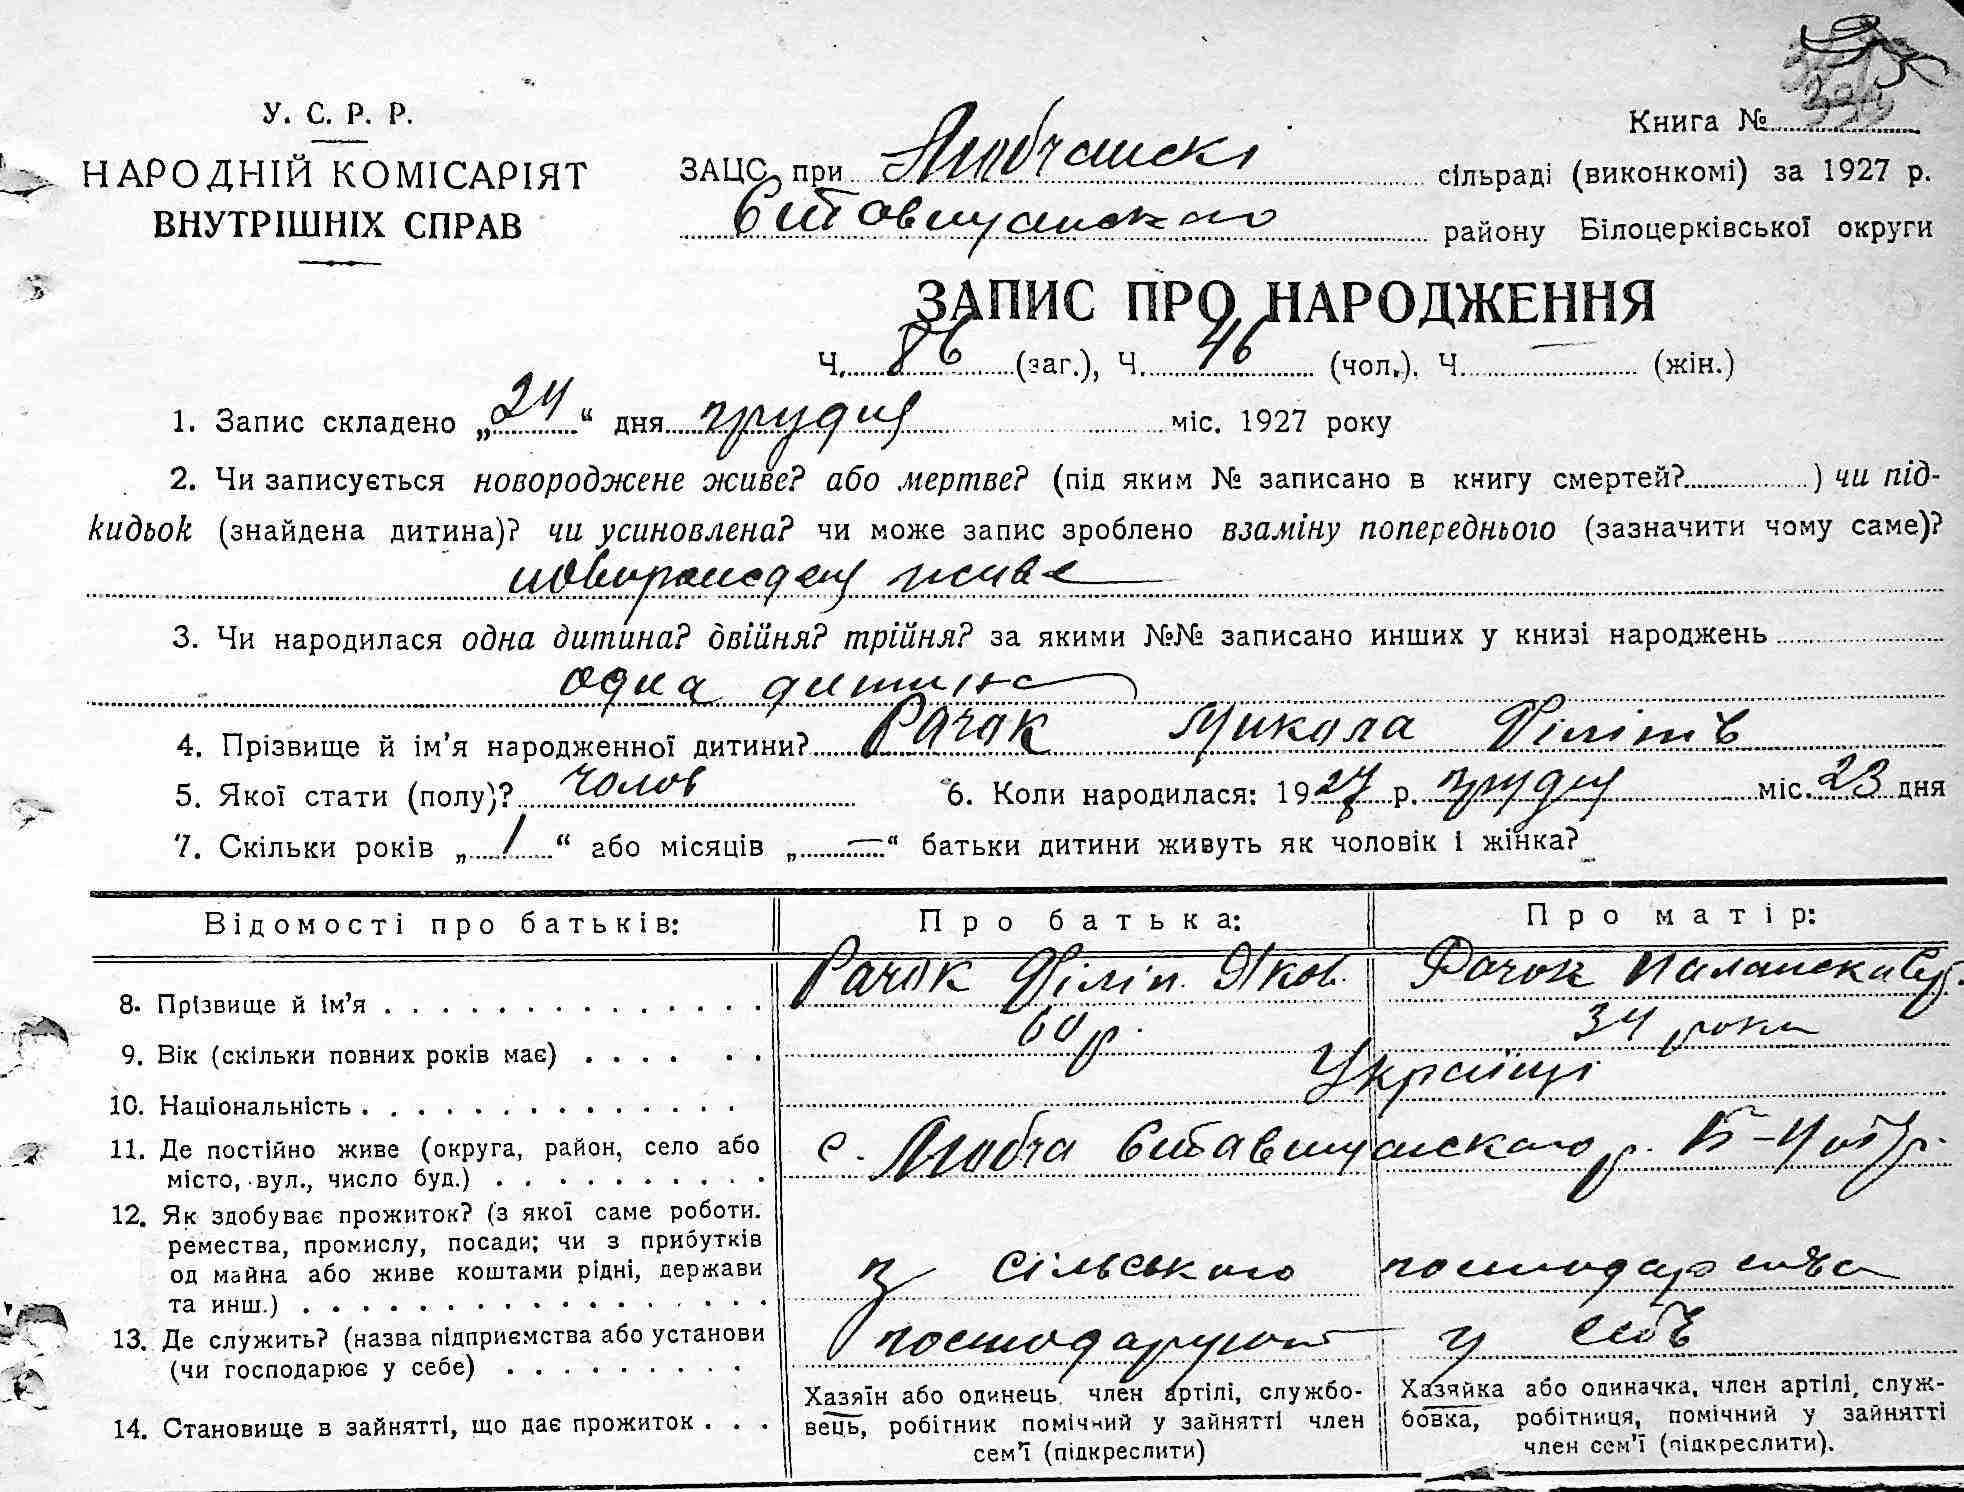 У. С. Р. Р.
НАРОДНІЙ КОМІСАРІЯТ
ВНУТРІШНІХ СПРАВ
Книга №
ЗАЦС при Любчанскі сільраді (виконкомі) за 1927 р.
Ставищанского району Білоцерківської округи
ЗАПИС ПРО НАРОДЖЕННЯ
Ч. 86 (заг.), Ч. 46 (чол.). Ч. — (жін.)
1. Запис складено „24“ дня грудня міс. 1927 року
2. Чи записується новороджене живе? або мертве? (під яким № записано в книгу смертей? ) чи під-
кидьок (знайдена дитина)? чи усиновлена? чи може запис зроблено взаміну попереднього (зазначити чому саме)?
живе
3. Чи народилася одна дитина? двійня? трійня? за якими №№ записано инших у книзі народжень
одна дитина
4. Прізвище й ім’я народженної дитини? Рачок Микола Філіпів
5. Якої стати (полу)? чолов 6. Коли народилася: 1927 р. грудня міс. 23 дня
7. Скільки років „1“ або місяців „—“ батьки дитини живуть як чоловік і жінка?
Відомості про батьків: Про батька: Про матір:
8. Прізвище й ім’я Рачок Філіп. Яков. Рачок
9. Вік (скільки повних років має) 60 р. 34 роки
10. Національність Українці
11. Де постійно живе (округа, район, село або
місто, вул., число буд.) с. Любча Ставищанского р. Б-Ц
12. Як здобуває прожиток? (з якої саме роботи.
ремества, промислу, посади; чи з прибутків
од майна або живе коштами рідні, держави
та инш.) з сільського господарства
13. Де служить? (назва підприємства або установи
(чи господарює у себе) господарують у себѣ
14. Становище в зайнятті, що дає прожиток
Хазяїн або одинець, член артілі, службо-
вець, робітник помічний у зайнятті член
сем’ї (підкреслити)
Хазяйка або одиначка, член артілі, служ-
бовка, робітниця, помічний у зайнятті
член сем’ї (підкреслити).